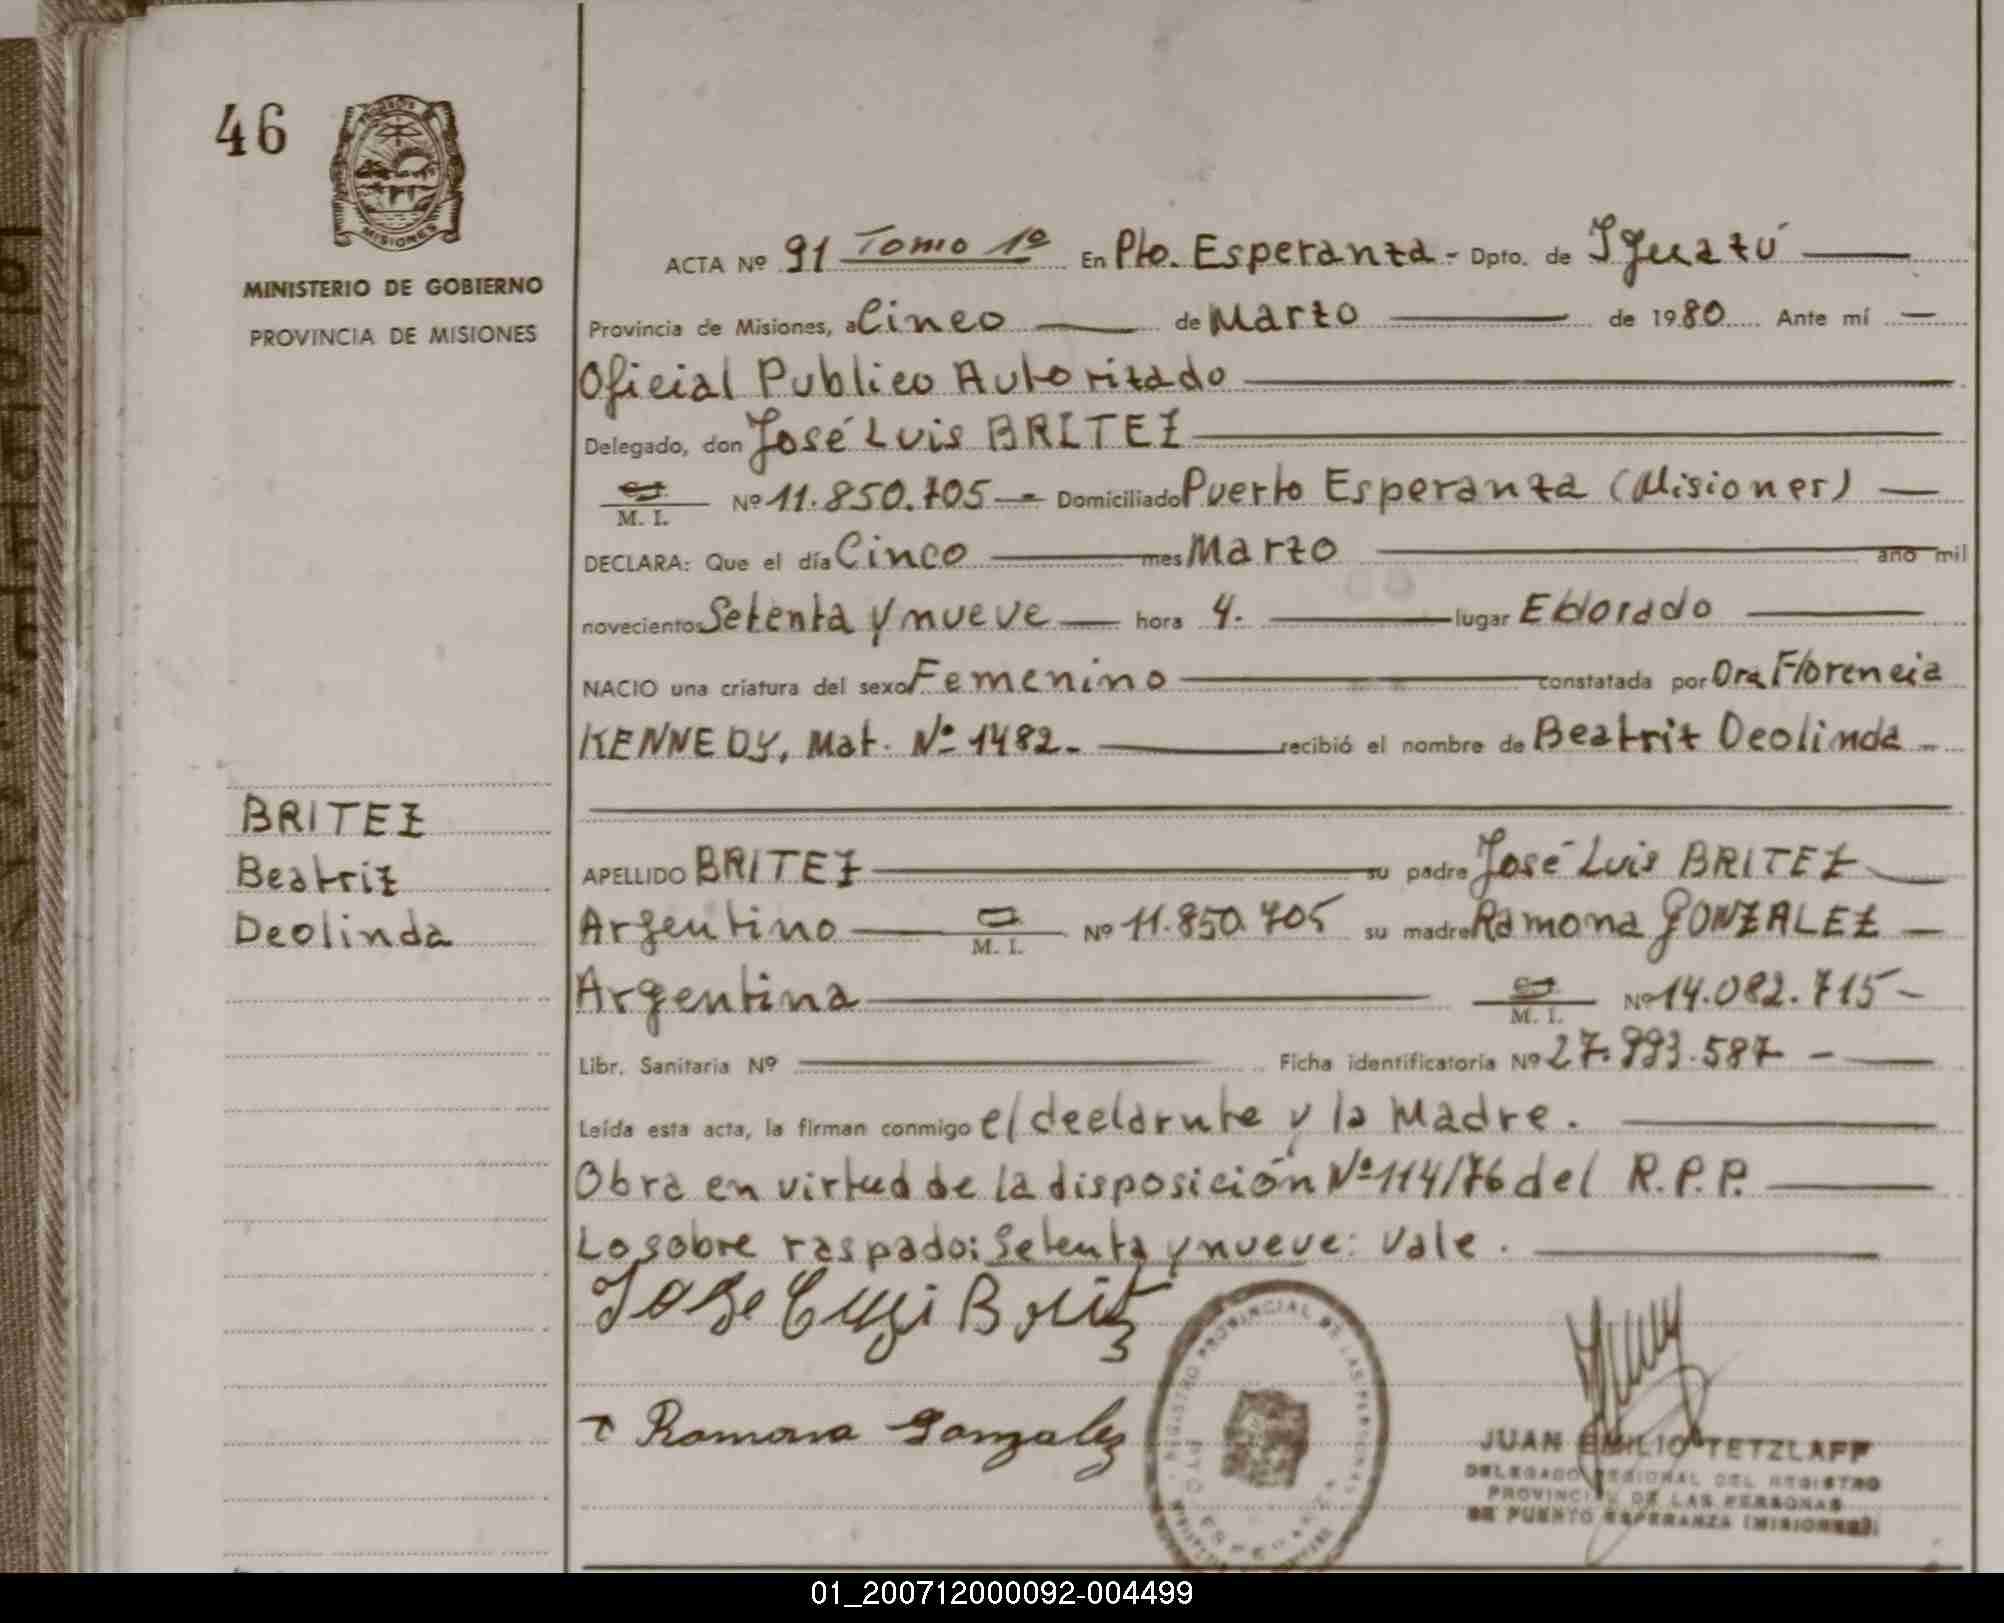 46
MISIONES
MINISTERIO DE GOBIERNO
PROVINCIA DE MISIONES
ACTA Nº 91 Tomo 1º En Pto. Esperanza - Dpto. de Iguazú
Provincia de Misiones, a Cinco de Marzo de 1980 Ante mí
Oficial Publico Autorizado
Delegado, don José Luis BRITEZ
M. I. Nº 11.850.705 - Domiciliado Puerto Esperanza (Misiones)
DECLARA: Que el día Cinco mes Marzo año mil
novecientos Setenta y nueve hora 4. lugar Eldorado
NACIO una criatura del sexo Femenino constatada por Dra Florencia
KENNEDY, Mat. Nº 1482. recibió el nombre de Beatriz Deolinda
BRITEZ
Beatriz
Deolinda
APELLIDO BRITEZ su padre José Luis BRITEZ
Argentino M. I. Nº 11.850.705 su madre Ramona GONZALEZ
Argentina M. I. Nº 14.082.715-
Libr. Sanitaria Nº Ficha identificatoria Nº 27.993.587 -
Leída esta acta, la firman conmigo el declarnte y la Madre.
Obra en virtud de la disposición Nº 114/76 del R.P.P.
Lo sobre raspado: Setenta y nueve: Vale.
Jose Luis Britez
Ramona Gonzalez
REGISTRO PROVINCIAL DE LAS PERSONAS
PTO ESPERANZA
JUAN EMILIO TETZLAFF
DELEGADO REGIONAL DEL REGISTRO
PROVINCIAL DE LAS PERSONAS
DE PUERTO ESPERANZA (MISIONES)
01_200712000092-004499